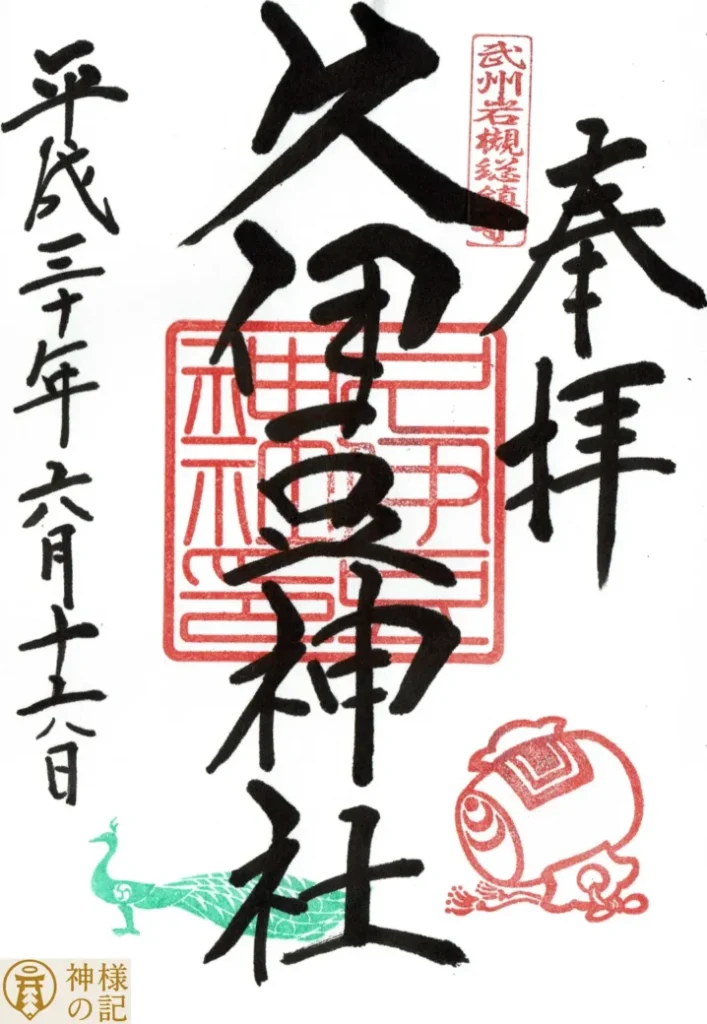 奉拝
武州岩槻総鎮守
久伊豆神社
平成三十年六月十六日
神様の記